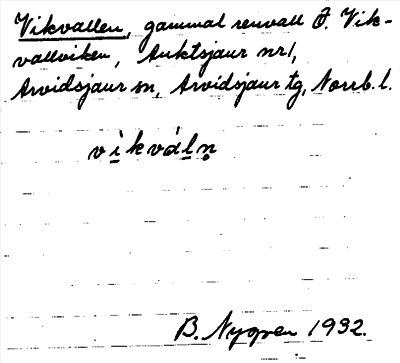 Vikvallen, gammal renvall Ö. Vik-
vallviken, Auktsjaur nr 1,
Arvidsjaur sn, Arvidsjaur tg, Norrb. l.
vikváln̥
B. Nygren 1932.